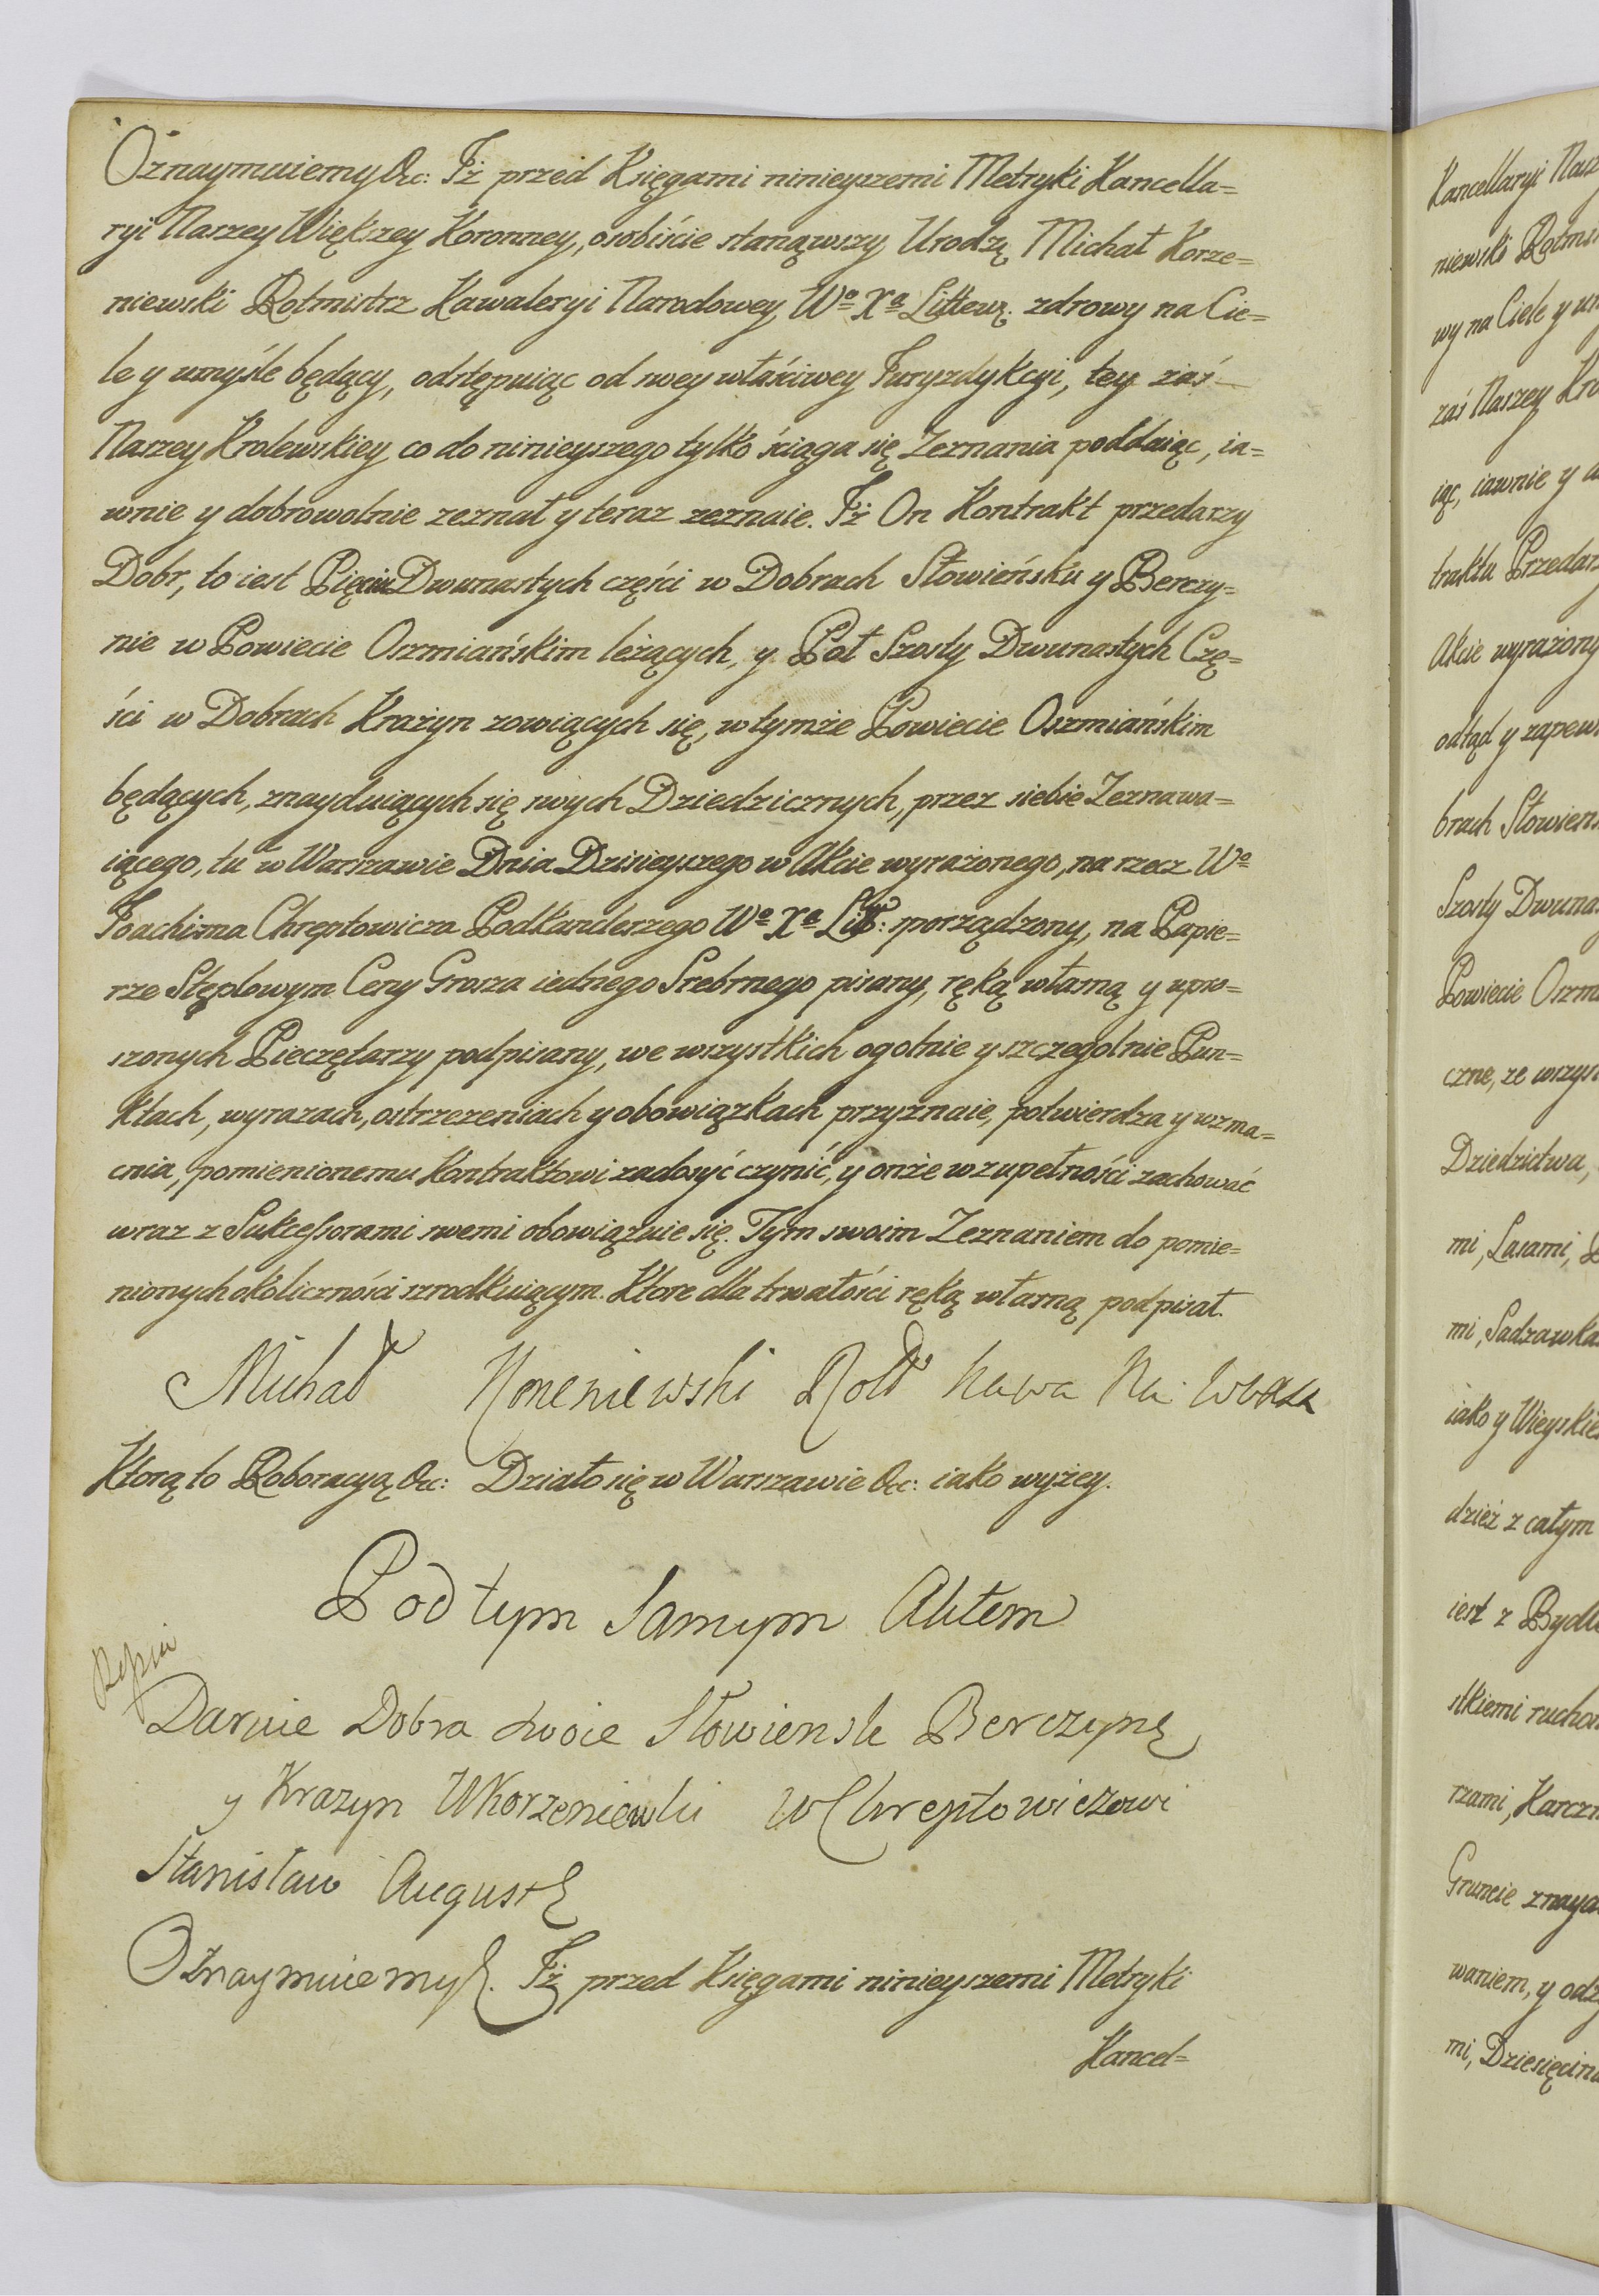 Oznaymuiemy &c: Iż przed Księgami ninieyszemi Metryki Kancella=
ryi Naszey Większey Koronney, osobiście stanąwszy Urodzą Michał Korze=
niewski Rotmistrz Kawaleryi Narodowey Wo Xa Littewą. zdrowy na Cie=
le y umyśle będący, odstępuiąc od swey właściwey Juryzdykcyi, tey zaś
Naszey Krolewskiey co do ninieyszego tylko ściąga się Zeznania poddaiąc, ia=
wnie y dobrowolnie zeznał y teraz zeznaie. Iż On Kontrakt przedarzy
Dobr, to iest Pięciu Dwunastych części w Dobrach Słowieńsku y Berczy=
nie w Powiecie Oszmiańskim leżących, y Poł Szosty Dwunastych Czę=
ści w Dobrach Krażyn zowiących się, w tymże Powiecie Oszmiańskim
będących, znayduiących się swych Dziedzicznych, przez siebie Zeznawa=
iącego, tu w Warszawie Dnia Dzisieyszego w Akcie wyrażonego, na rzecz Wo
Joachima Chreptowicza Podkanclerzego Wo Xa Litt: sporządzony, na Papie=
rze Stęplowym Ceny Grosza iednego Srebrnego pisany, ręką własną y upro=
szonych Pieczętarzy podpisany, we wszystkich ogolnie y szczegolnie Pun=
ktach, wyrazach, ostrzezeniach y obowiązkach przyznaie, potwierdza y wzma=
cnia, pomienionemu Kontraktowi zadosyć czynić, y onże w zupełności zachować
wraz z Sukcessorami swemi obowiązuie się. Tym swoim Zeznaniem do pomie=
nionych okoliczności szrodkuiącym. Ktore dla trwałości ręką własną podpisał.
Michał Korzeniewski Rott Kawa Na
Ktorą to Roboracyą &c: Działo się w Warszawie &c: iako wyżey.
Pod tym Samym Aktem
Daruie Dobra swoie Słowiensk Berczynę
y Krazyn W Korzeniewski W Chreptowiczowi
Stanisław August &
Oznaymuiemy &. Iż przed Księgami ninieyszemi Metryki
Kancel=
Kancellaryi Nasz
niewski Rotms
wy na Ciele y um
zaś Naszey Kro
iąc, iawnie y
traktu Przedarz
Akcie wyrażony
odtąd y zapew
brach Słowiens
Szosty Dwuna
Powiecie Oszm
czne, ze wszys
Dziedzictwa,
mi, Lasami,
mi, Sadzawka
iako y Wieyskie
dzież z całym
iest z Bydł
stkiemi rucho
rzami, Karczm
Gruncie znayd
waniem, y odz
mi, Dziesięcina